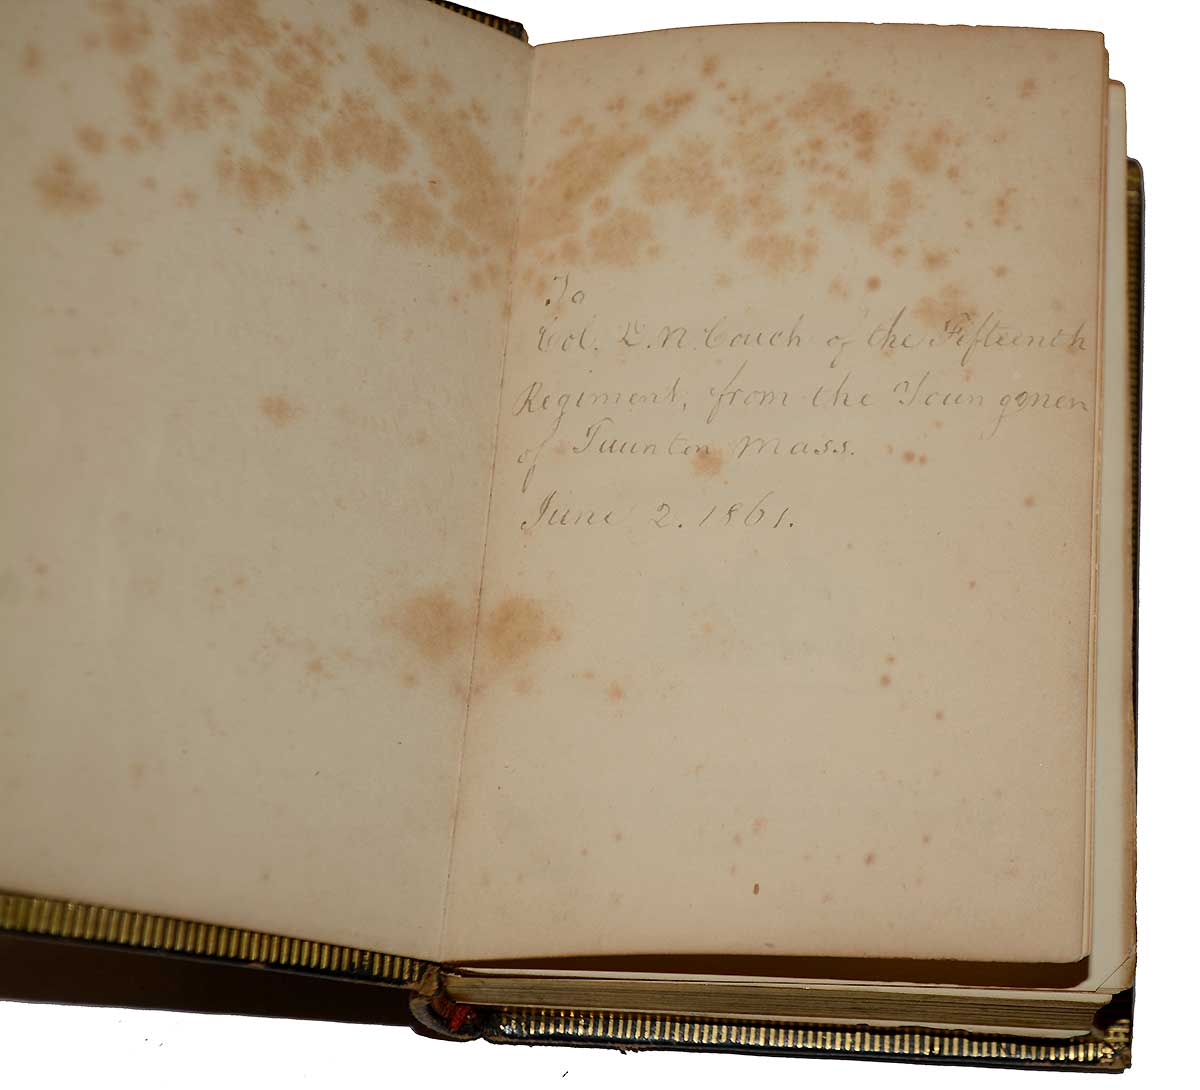 To
Col. D.N. Couch of the Fifteenth
Regiment, from the Young men
of Taunton Mass.
June 2. 1861.